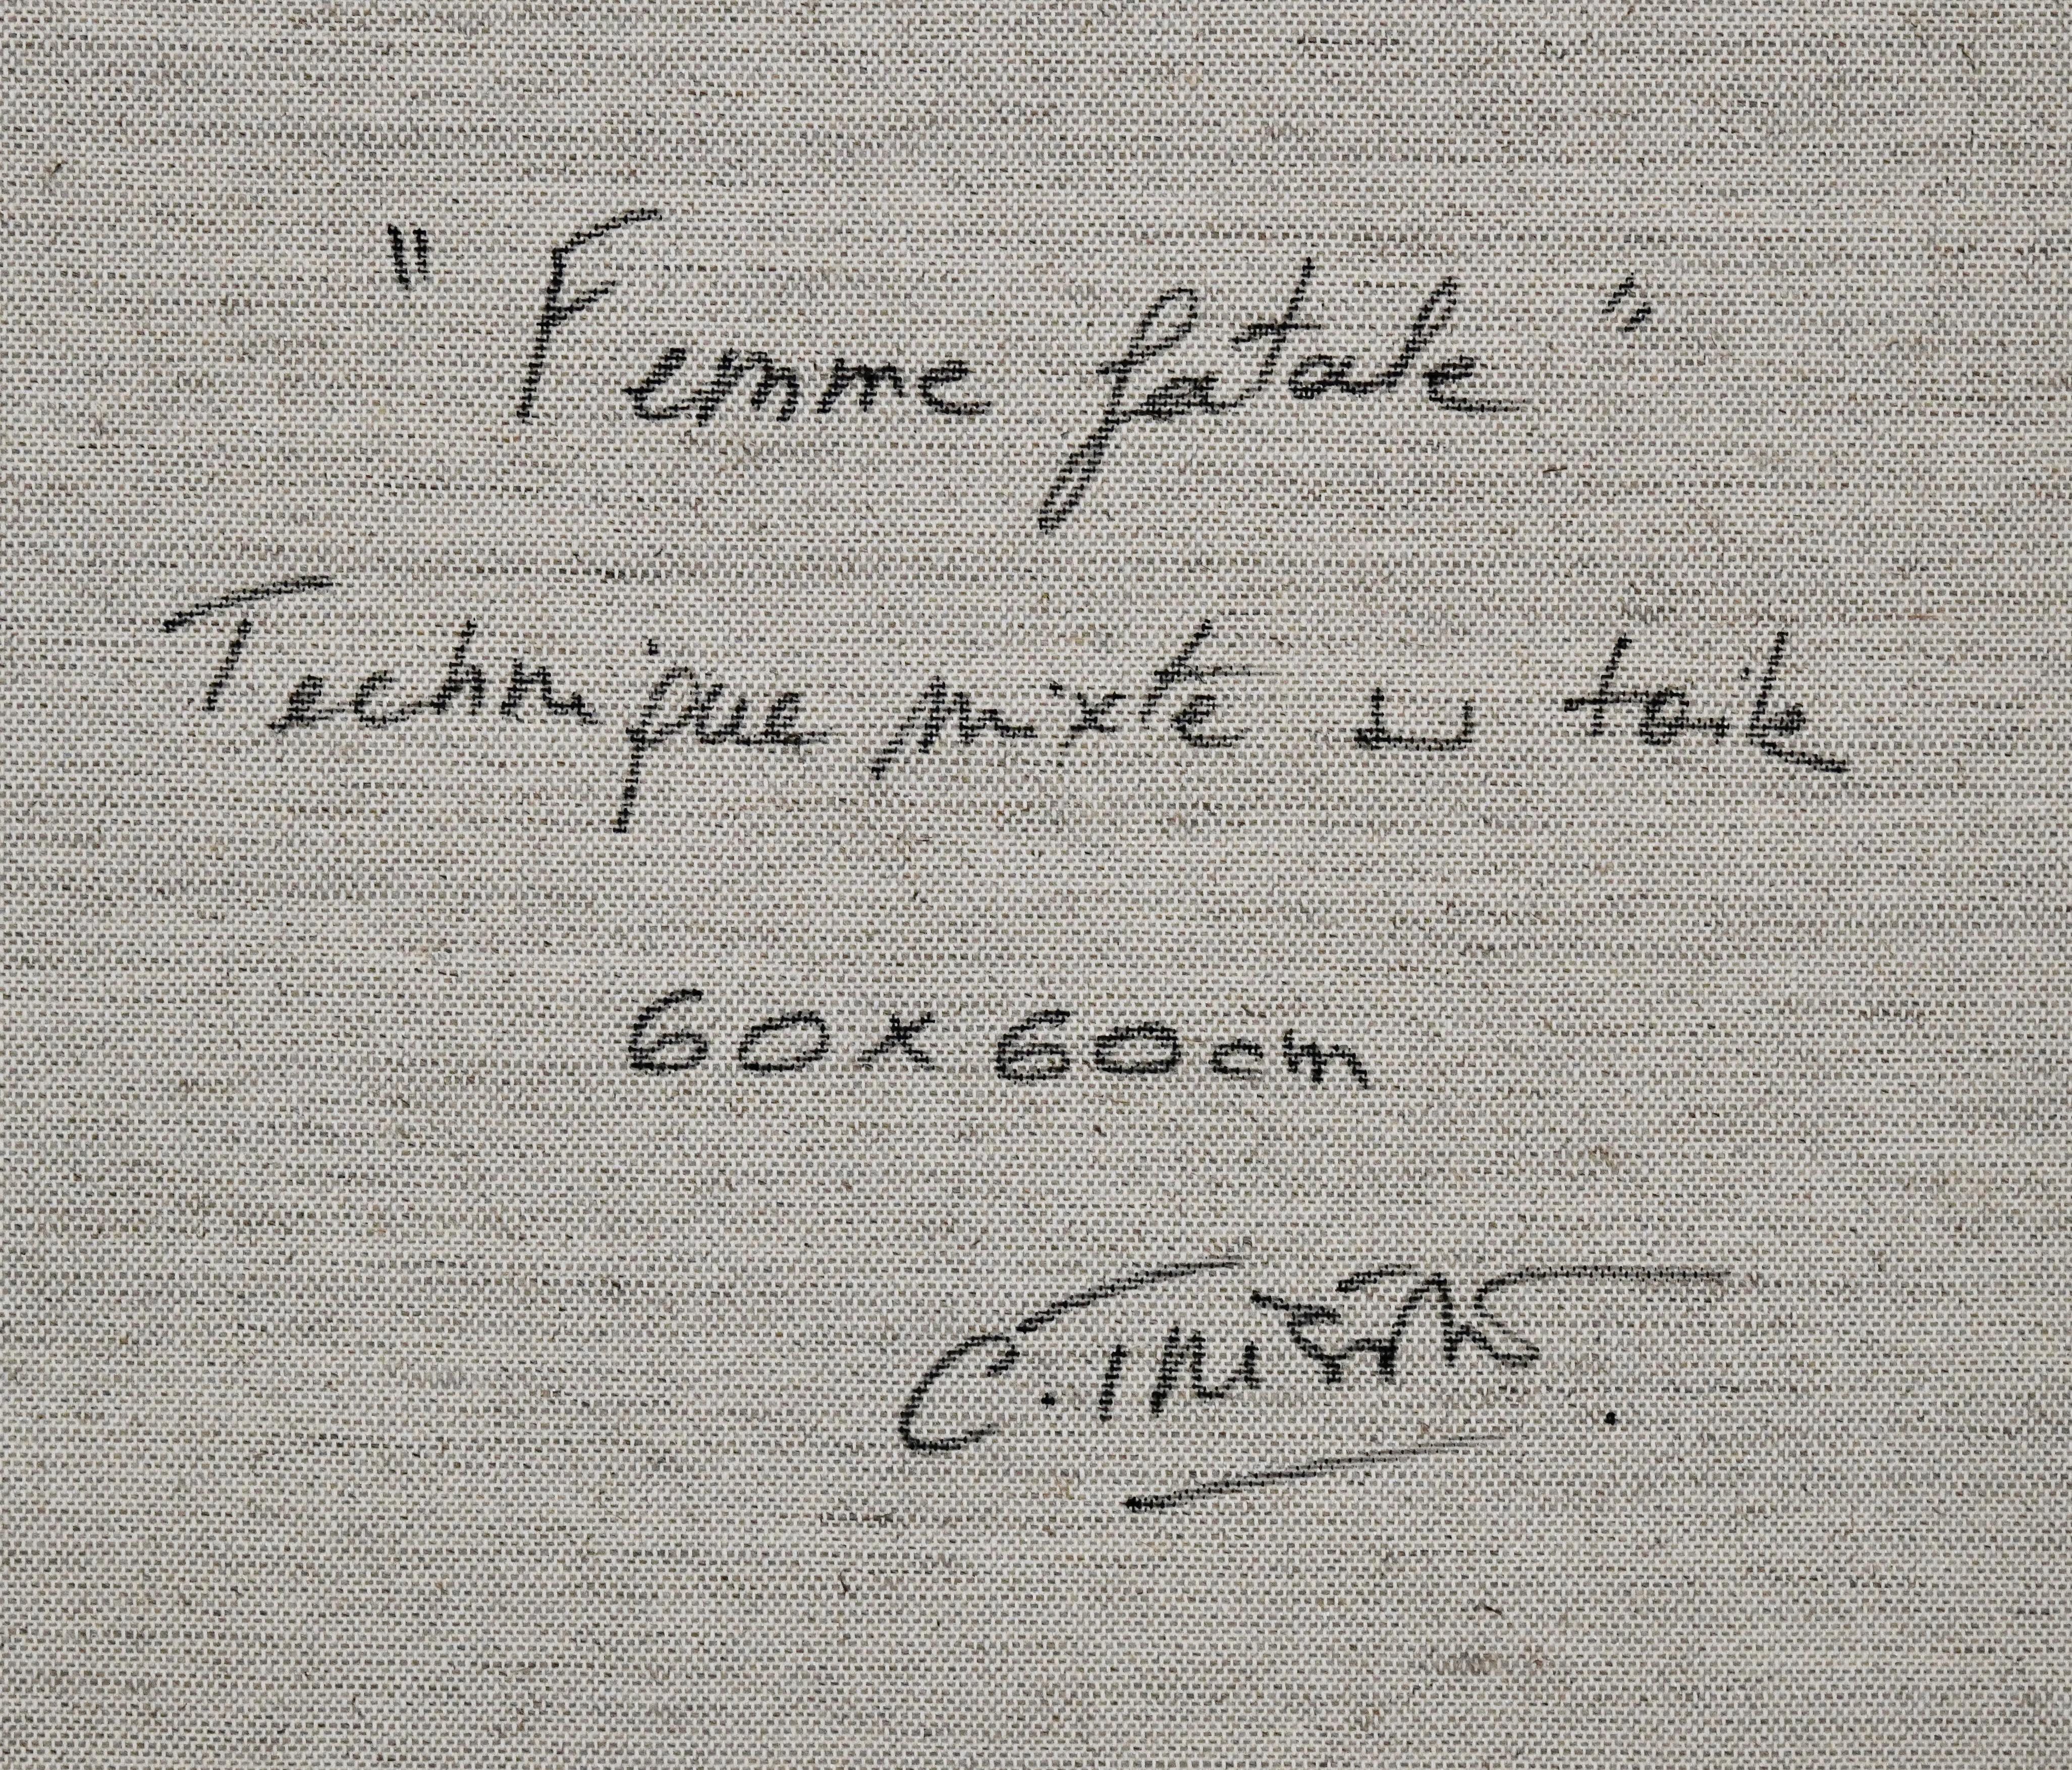 "Femme fatale"
Technique mixte toile
60x60cm
C.